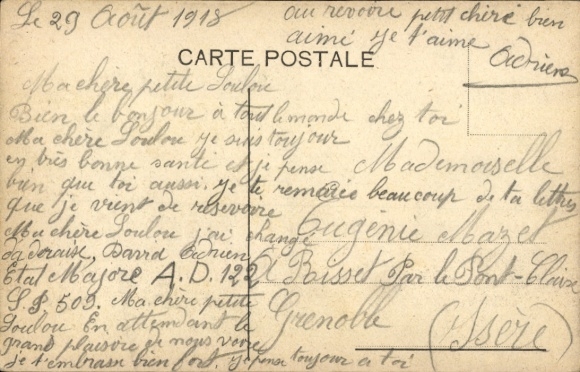 Le 29 Août 1918
au revoire petit chéri bien
aimé je t'aime
Adrien
CARTE POSTALE
Ma chère petite Loulou
Bien le bonjour à tout le monde chez toi
Ma chère Loulou je suis toujour
en très bonne santé et je pense
bien que toi aussi. je te remércie beaucoup de ta lettres
que je vient de resevoire
Ma chère Loulou j'ai changé
d'aderaise, David Adrien
Etat Majore A.D. 122
S P 509. Ma chère petite
Loulou En attendant le
grand plaisire de nous voire
je t'embrasse bien fort. je pense toujour a toi
Mademoiselle
Eugénie Mazet
A Risset Par le Pont-Claix
Grenoble
(Isère)